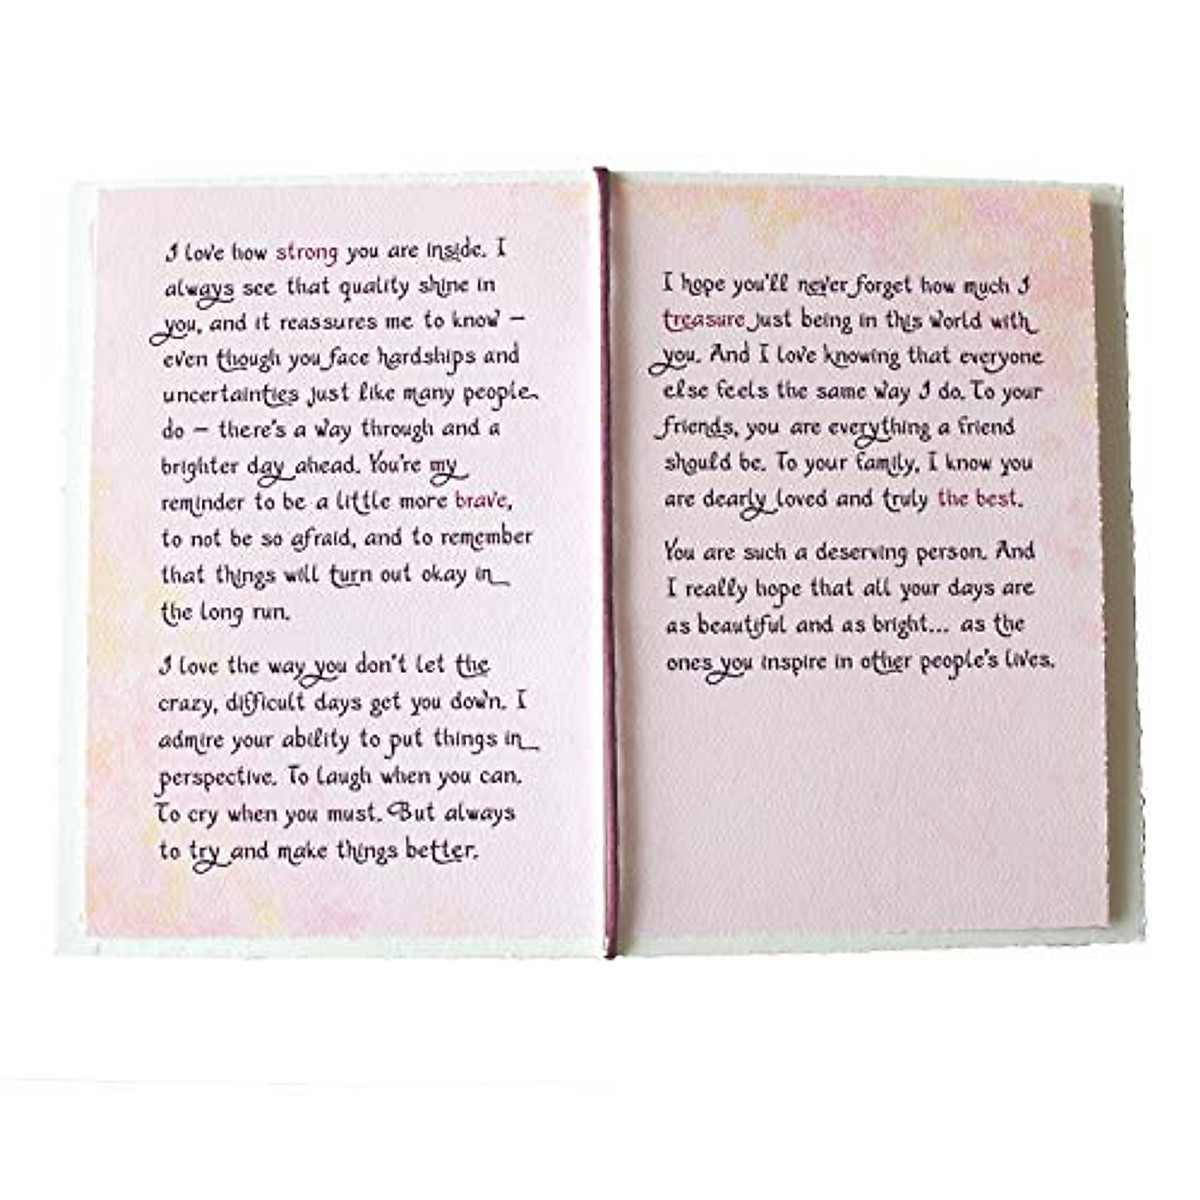 I love how strong you are inside. I
always see that quality shine in
you, and it reassures me to know –
even though you face hardships and
uncertainties just like many people
do – there's a way through and a
brighter day ahead. You're my
reminder to be a little more brave,
to not be so afraid, and to remember
that things will turn out okay in
the long run.
I love the way you don't let the
crazy, difficult days get you down. I
admire your ability to put things in
perspective. To laugh when you can.
To cry when you must. But always
to try and make things better.
I hope you'll never forget how much I
treasure just being in this world with
you. And I love knowing that everyone
else feels the same way I do. To your
friends, you are everything a friend
should be. To your family, I know you
are dearly loved and truly the best.
You are such a deserving person. And
I really hope that all your days are
as beautiful and as bright... as the
ones you inspire in other people's lives.